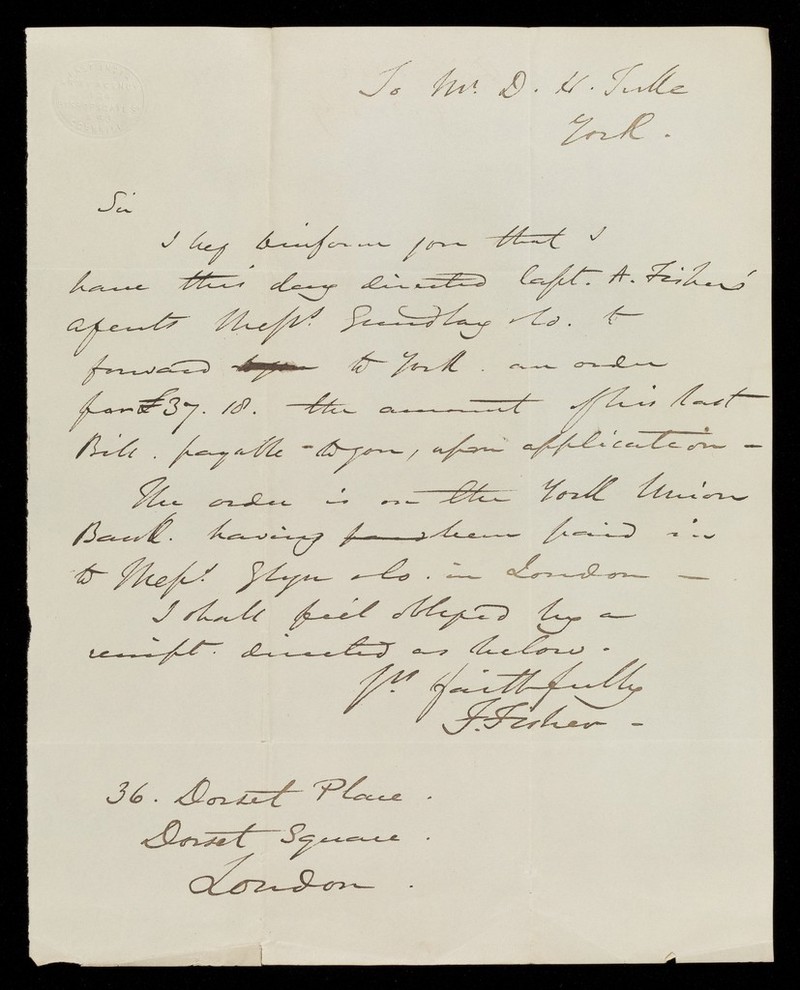 To Mr. D. H. Tulke
York.
Sir
I beg to inform you that I
have this day directed Capt. A. Fisher's
agents Messrs. Grindlay & Co. to
forward to York. an order
for £37. 18. the amount of his last
Bill. payable to you, upon application -
The order is on the York Union
Bank. having been paid in
to Messrs. Glyn & Co. in London -
I shall feel obliged by a
receipt. directed as below.
Yrs faithfully
F. Fisher -
36. Dorset Place.
Dorset Square.
London.